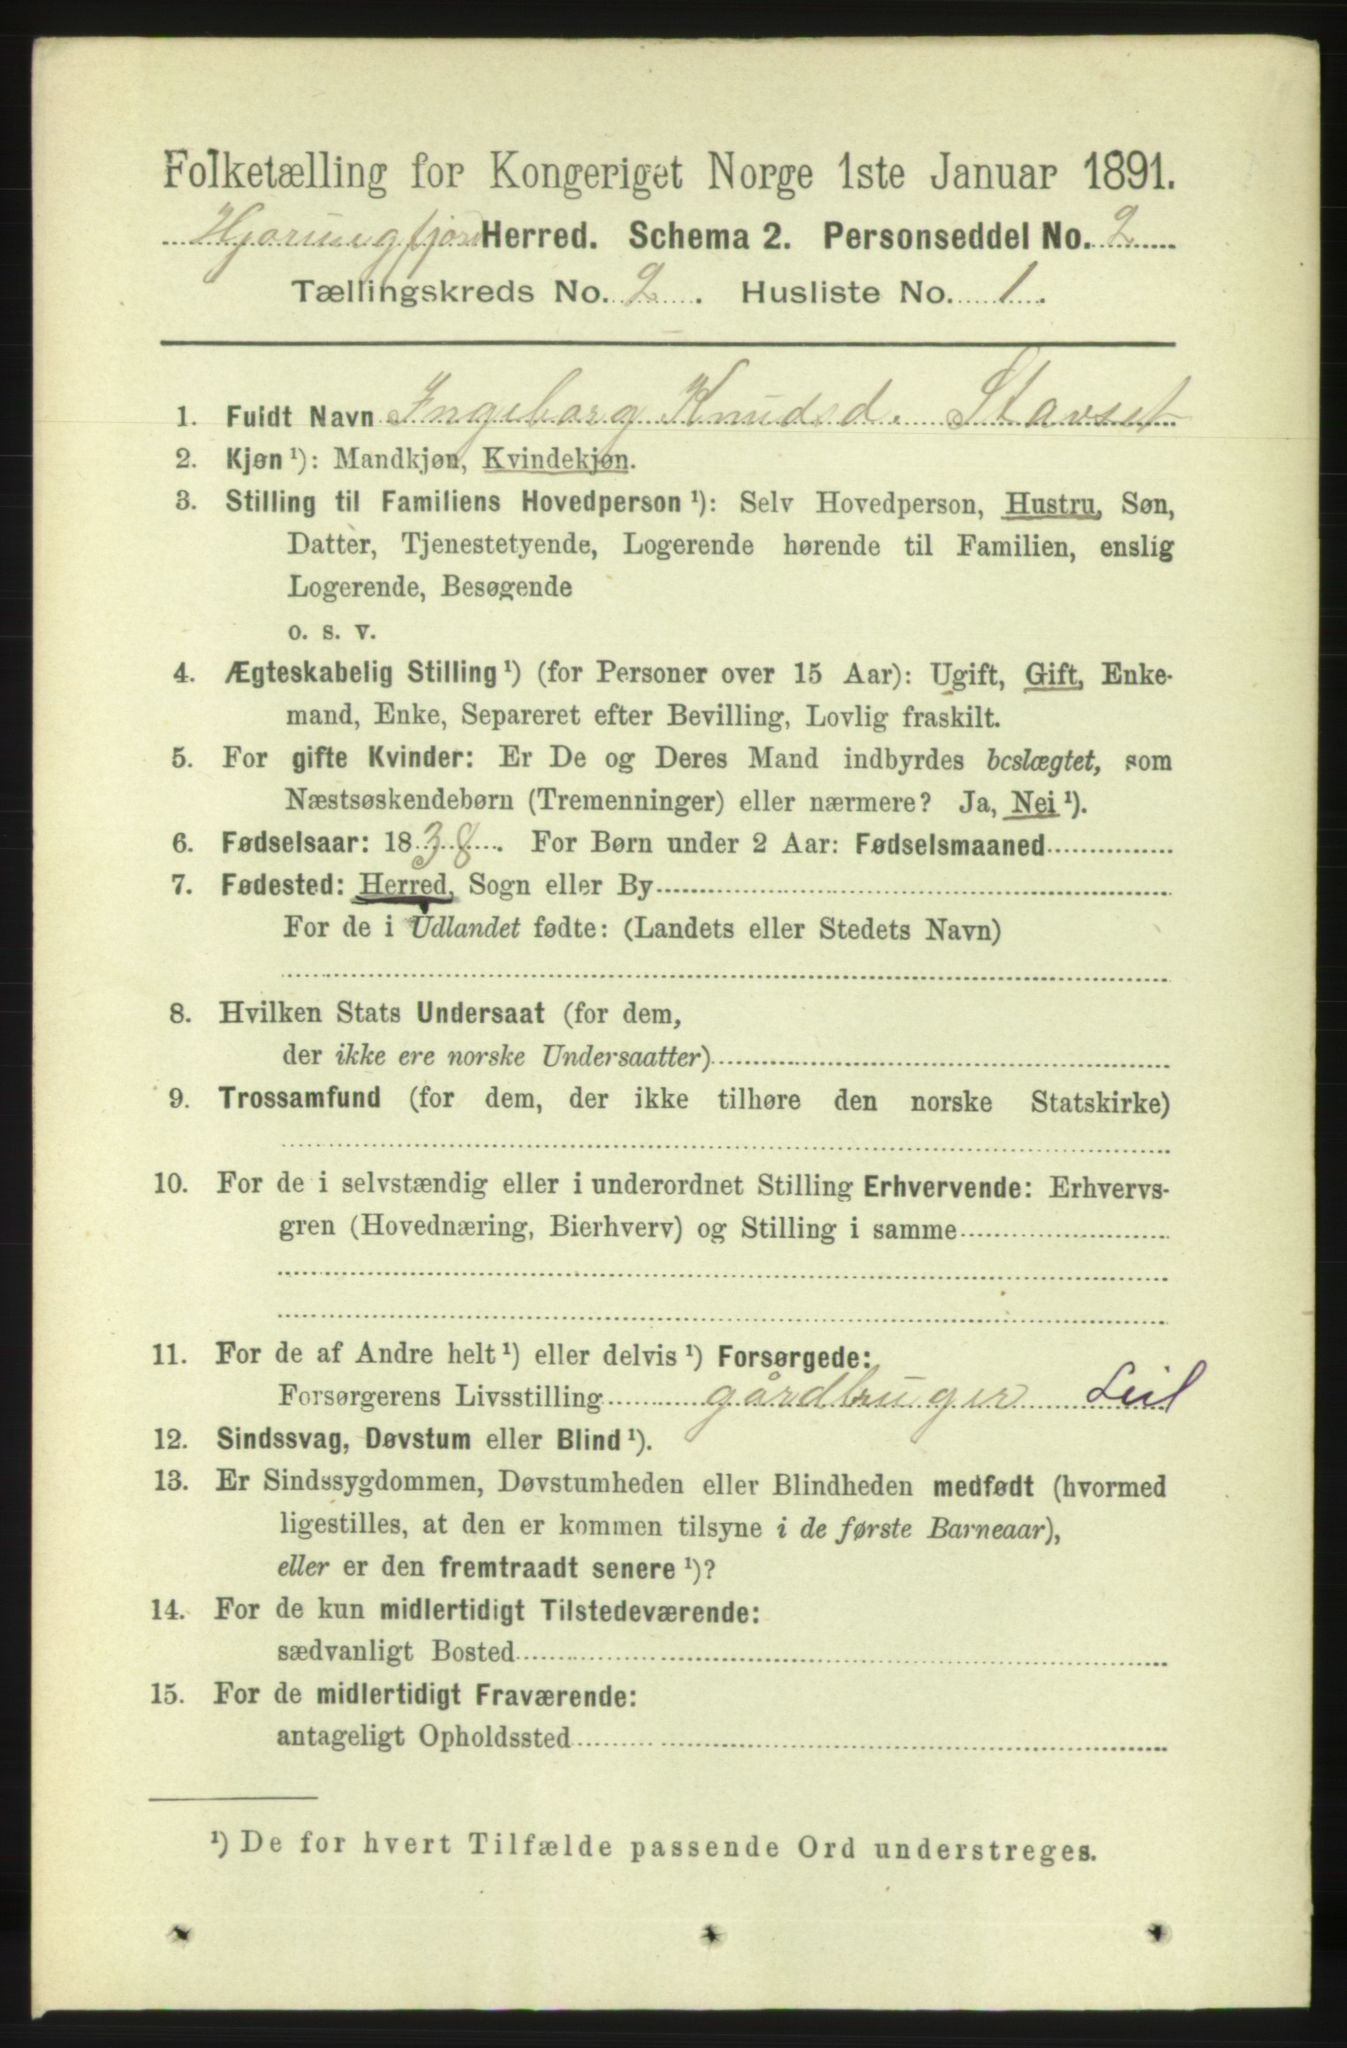 Folketælling for Kongeriget Norge 1ste Januar 1891.
Hjørungfjord Herred. Schema 2. Personseddel No. 2
Tællingskreds No. 2. Husliste No. 1.
1. Fuldt Navn Ingeborg Knudsd. Stavset
2. Kjøn ¹): Mandkjøn, Kvindekjøn.
3. Stilling til Familiens Hovedperson ¹): Selv Hovedperson, Hustru, Søn,
Datter, Tjenestetyende, Logerende hørende til Familien, enslig
Logerende, Besøgende
o. s. v.
4. Ægteskabelig Stilling ¹) (for Personer over 15 Aar): Ugift, Gift, Enke-
mand, Enke, Separeret efter Bevilling, Lovlig fraskilt.
5. For gifte Kvinder: Er De og Deres Mand indbyrdes beslægtet, som
Næstsøskendebørn (Tremenninger) eller nærmere? Ja, Nei ¹).
6. Fødselsaar: 1838. For Børn under 2 Aar: Fødselsmaaned
7. Fødested: Herred, Sogn eller By
For de i Udlandet fødte: (Landets eller Stedets Navn)
8. Hvilken Stats Undersaat (for dem,
der ikke ere norske Undersaatter)
9. Trossamfund (for dem, der ikke tilhøre den norske Statskirke)
10. For de i selvstændig eller i underordnet Stilling Erhvervende: Erhvervs-
gren (Hovednæring, Bierhverv) og Stilling i samme
11. For de af Andre helt ¹) eller delvis ¹) Forsørgede:
Forsørgerens Livsstilling gårdbruger Leil
12. Sindssvag, Døvstum eller Blind ¹).
13. Er Sindssygdommen, Døvstumheden eller Blindheden medfødt (hvormed
ligestilles, at den er kommen tilsyne i de første Barneaar),
eller er den fremtraadt senere ¹)?
14. For de kun midlertidigt Tilstedeværende:
sædvanligt Bosted
15. For de midlertidigt Fraværende:
antageligt Opholdssted
¹) De for hvert Tilfælde passende Ord understreges.